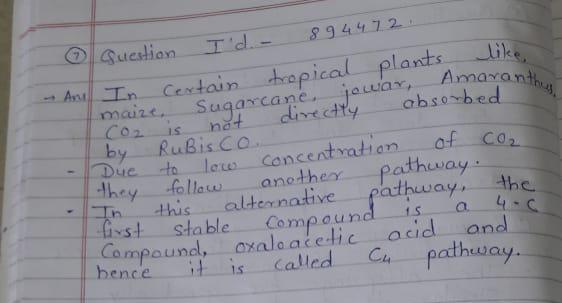 ⑦ Question I'd. - 894472.
→ Ans In Certain tropical plants like,
maize, Sugarcane, jowar, Amaranthus,
CO2 is not directly absorbed
by RuBisCO.
- Due to low concentration of CO2
they follow another pathway.
- In this alternative pathway, the
first stable compound is a 4-C
Compound, oxaloacetic acid and
hence it is called C4 pathway.